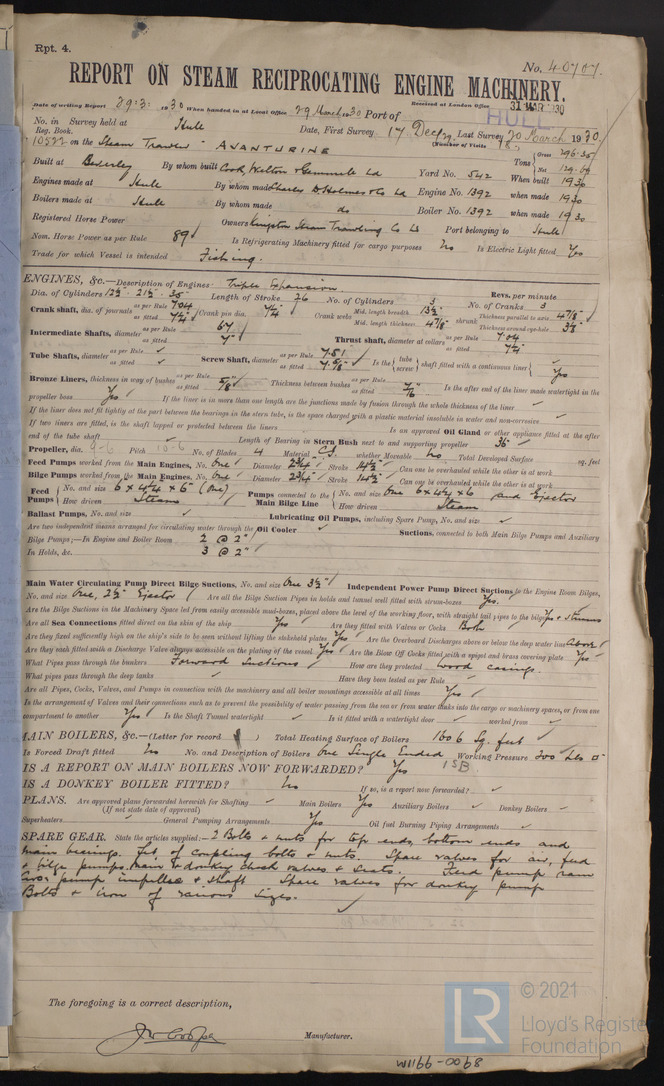 Rpt. 4.
No. 40707.
REPORT ON STEAM RECIPROCATING ENGINE MACHINERY.
Received at London Office 31 MAR 1930
Date of writing Report 29:3: 1930 When handed in at Local Office 29 March 1930 Port of HULL
No. in Survey held at Hull Date, First Survey 17 Dec/29 Last Survey 20 March 1930
Reg. Book. (Number of Visits
10522 on the Steam Trawler - AVANTURINE Tons Gross 296.35 Net 129.09
Built at Beverley By whom built Cook, Welton & Gemmell Ld Yard No. 542 When built 1930
Engines made at Hull By whom made Charles D Holmes & Co Ld Engine No. 1392 when made 1930
Boilers made at Hull By whom made do Boiler No. 1392 when made 1930
Registered Horse Power Owners Kingston Steam Trawling Co Ld Port belonging to Hull
Nom. Horse Power as per Rule 89 Is Refrigerating Machinery fitted for cargo purposes No Is Electric Light fitted Yes
Trade for which Vessel is intended Fishing.
ENGINES, &c.—Description of Engines Triple Expansion Revs. per minute
Dia. of Cylinders 12½ - 21½ - 35 Length of Stroke 26 No. of Cylinders 3 No. of Cranks 3
Crank shaft, dia. of journals as per Rule 7.04 as fitted 7¼" Crank pin dia. 7¼" Crank webs Mid. length breadth 13½ Mid. length thickness 4⅞" shrunk Thickness parallel to axis 4⅞" Thickness around eye-hole 3⅛"
Intermediate Shafts, diameter as per Rule 6.7 as fitted 7" Thrust shaft, diameter at collars as per Rule 7.04 as fitted 7¼
Tube Shafts, diameter as per Rule as fitted Screw Shaft, diameter as per Rule 7.51 as fitted 7⅝" Is the tube screw shaft fitted with a continuous liner Yes
Bronze Liners, thickness in way of bushes as per Rule as fitted ⅝" Thickness between bushes as per Rule as fitted 7/16" Is the after end of the liner made watertight in the
propeller boss Yes If the liner is in more than one length are the junctions made by fusion through the whole thickness of the liner
If the liner does not fit tightly at the part between the bearings in the stern tube, is the space charged with a plastic material insoluble in water and non-corrosive
If two liners are fitted, is the shaft lapped or protected between the liners Is an approved Oil Gland or other appliance fitted at the after
end of the tube shaft Length of Bearing in Stern Bush next to and supporting propeller 36"
Propeller, dia. 9-6 Pitch 10-6 No. of Blades 4 Material C.I. whether Moveable No Total Developed Surface sq. feet
Feed Pumps worked from the Main Engines, No. One Diameter 2¾" Stroke 14½" Can one be overhauled while the other is at work
Bilge Pumps worked from the Main Engines, No. One Diameter 2¾" Stroke 14½" Can one be overhauled while the other is at work
Feed Pumps No. and size 6 x 4¼ x 6 (One) How driven Steam Pumps connected to the Main Bilge Line No. and size One 6 x 4¼ x 6 and Ejector How driven Steam
Ballast Pumps, No. and size Lubricating Oil Pumps, including Spare Pump, No. and size
Are two independent means arranged for circulating water through the Oil Cooler Suctions, connected to both Main Bilge Pumps and Auxiliary
Bilge Pumps;—In Engine and Boiler Room 2 @ 2"
In Holds, &c. 3 @ 2"
Main Water Circulating Pump Direct Bilge Suctions, No. and size One 3½" Independent Power Pump Direct Suctions to the Engine Room Bilges,
No. and size One, 2½" Ejector Are all the Bilge Suction Pipes in holds and tunnel well fitted with strum-boxes Yes.
Are the Bilge Suctions in the Machinery Space led from easily accessible mud-boxes, placed above the level of the working floor, with straight tail pipes to the bilges Yes & Strums
Are all Sea Connections fitted direct on the skin of the ship Yes Are they fitted with Valves or Cocks Both
Are they fixed sufficiently high on the ship's side to be seen without lifting the stokehold plates Yes Are the Overboard Discharges above or below the deep water line Above
Are they each fitted with a Discharge Valve always accessible on the plating of the vessel Yes Are the Blow Off Cocks fitted with a spigot and brass covering plate Yes
What Pipes pass through the bunkers Forward Suctions How are they protected Wood casings.
What pipes pass through the deep tanks Have they been tested as per Rule
Are all Pipes, Cocks, Valves, and Pumps in connection with the machinery and all boiler mountings accessible at all times Yes
Is the arrangement of Valves and their connections such as to prevent the possibility of water passing from the sea or from water tanks into the cargo or machinery spaces, or from one
compartment to another Yes Is the Shaft Tunnel watertight Is it fitted with a watertight door worked from
MAIN BOILERS, &c.—(Letter for record ) Total Heating Surface of Boilers 1606 Sq. feet
Is Forced Draft fitted No No. and Description of Boilers One Single Ended Working Pressure 200 Lbs
IS A REPORT ON MAIN BOILERS NOW FORWARDED? Yes 1SB
IS A DONKEY BOILER FITTED? No If so, is a report now forwarded?
PLANS. Are approved plans forwarded herewith for Shafting Main Boilers Yes Auxiliary Boilers Donkey Boilers
(If not state date of approval)
Superheaters General Pumping Arrangements Yes Oil fuel Burning Piping Arrangements
SPARE GEAR. State the articles supplied:— 2 Bolts & nuts for top ends, bottom ends and
main bearings. Set of coupling bolts & nuts. Spare valves for air, feed
& bilge pumps. Main & donkey check valves & seats. Feed pump ram
Circ: pump impeller & shaft Spare valves for donkey pump
Bolts & iron of various sizes.
The foregoing is a correct description,
Manufacturer.
© 2021
LR
Lloyd's Register
Foundation
W1199-0098